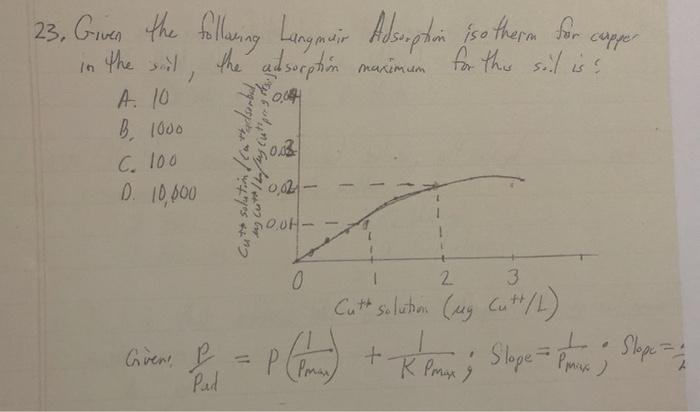 23. Given the following Langmuir Adsorption isotherm for copper
in the soil, the adsorption maximum for this soil is:
A. 10
B. 1000
C. 100
D. 10,000
Cu++ solution / Cu++ adsorbed,
0.04
0.03
0.02
0.01
0 1 2 3
Cu++ solution (ug Cu++/L)
Given: P/Pad = P(1/Pmax) + 1/K Pmax ; Slope = 1/Pmax ; Slope =